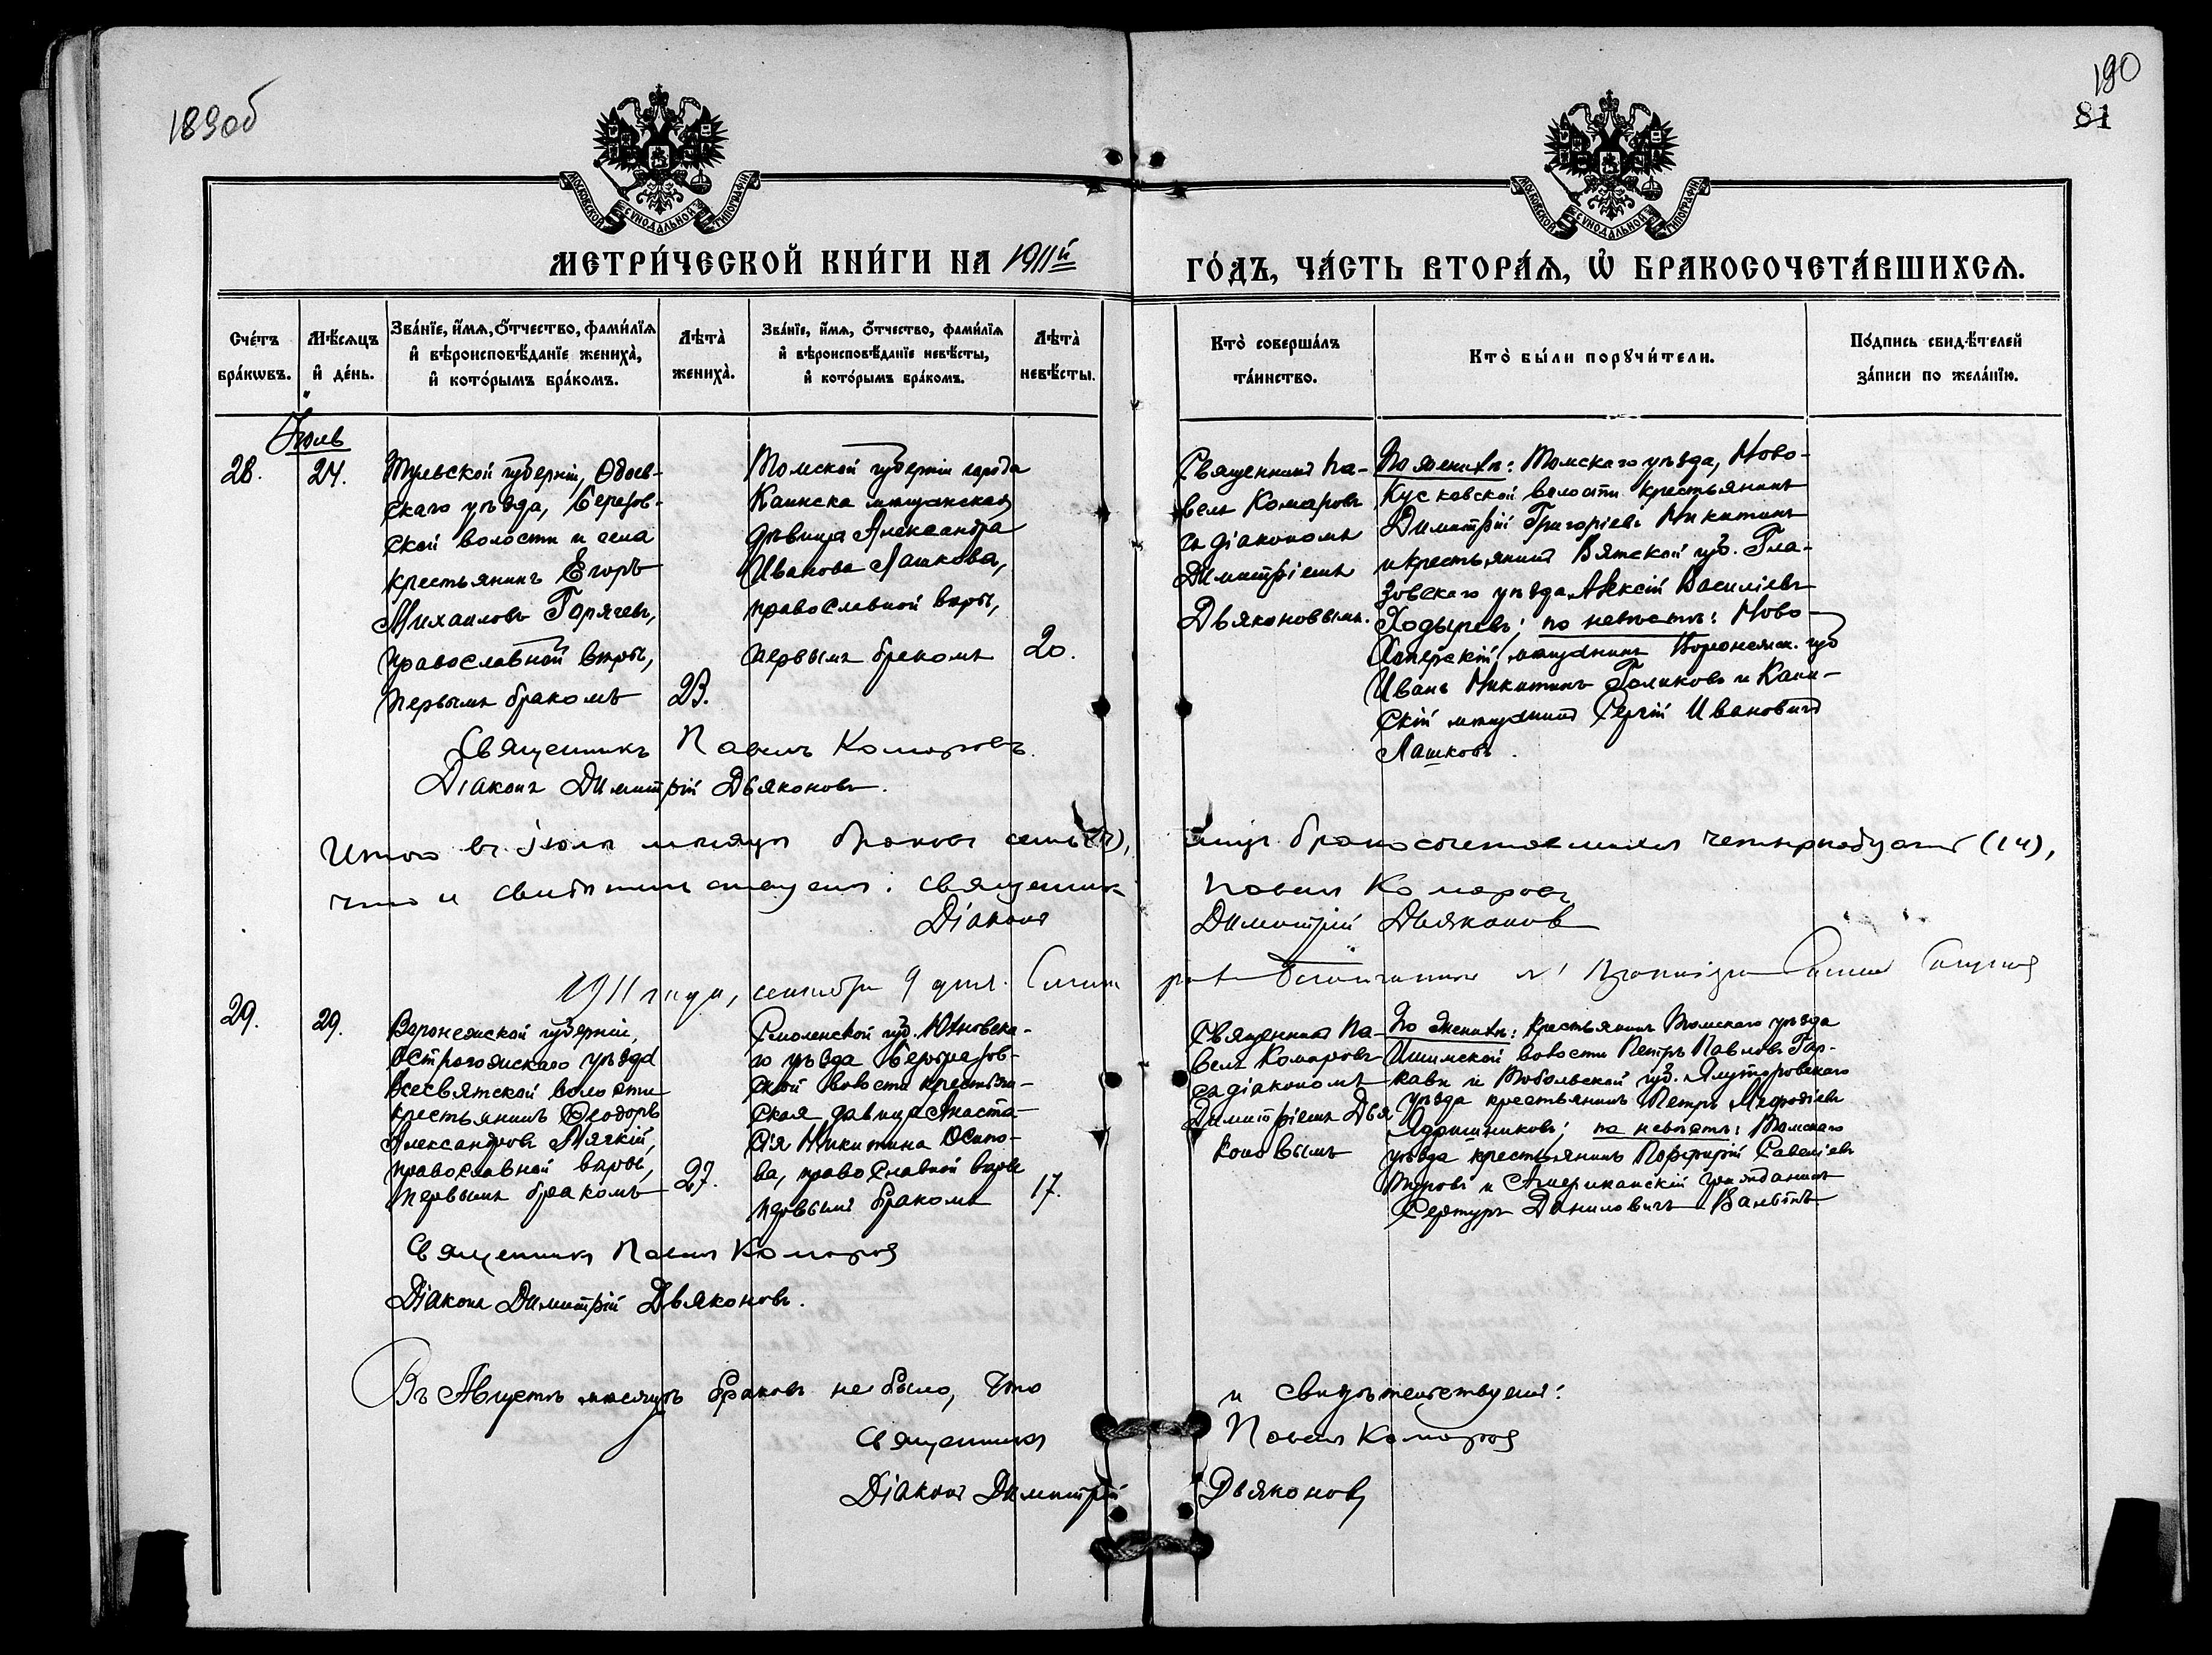 189об
190
81
МОСКОВСКОЙ СѴНОДАЛЬНОЙ ТИПОГРАФІИ
МОСКОВСКОЙ СѴНОДАЛЬНОЙ ТИПОГРАФІИ
МЕТРИ́ЧЕСКОЙ КНИ́ГИ НА 1911й
ГО́ДЪ, ЧА́СТЬ ВТОРА́Ѧ, Ѽ БРАКОСОЧЕТА́ВШИХСѦ.
Сче́тъ бра́кѡвъ.
Мѣ́сѧцъ и҆ де́нь.
Зва́нїе, и҆́мѧ, ѻ҆́тчество, фами́лїѧ
и҆ вѣроисповѣ́данїе жениха̀,
и҆ кото́рымъ бра́комъ.
Лѣта̀ жениха̀.
Зва́нїе, и҆́мѧ, ѻ҆́тчество, фами́лїѧ
и҆ вѣроисповѣ́данїе невѣ́сты,
и҆ кото́рымъ бра́комъ.
Лѣта̀ невѣ́сты.
Кто̀ соверша́лъ
та́инство.
Кто̀ бы́ли порꙋчи́тели.
По́дпись свидѣ́телей
за́писи по жела́нїю.
Іюль
28.
24.
Тульской губерніи, Одоев-
скаго уѣзда, Березов-
ской волости и села
крестьянинъ Егоръ
Михаиловъ Горячевъ,
православной вѣры,
первымъ бракомъ
23.
Томской губерніи города
Каинска мѣщанская
дѣвица Александра
Иванова Лашкова,
православной вѣры,
первымъ бракомъ
20.
Священникъ Па-
велъ Комаровъ
съ діакономъ
Димитріемъ
Дьяконовымъ.
По женихѣ: Томскаго уѣзда, Ново-
Кусковской волости крестьянинъ
Димитрій Григоріевъ Никитинъ
и крестьянинъ Вятской губ. Гла-
зовскаго уѣзда Алексій Василіевъ
Ходыревъ; по невѣстѣ: Ново-
Хоперскій мѣщанинъ Воронежск. губ
Иванъ Никитинъ Голиковъ и Каин-
скій мѣщанинъ Сергій Ивановичъ
Лашковъ.
Священникъ Павелъ Комаровъ.
Діаконъ Димитрій Дьяконовъ.
Итого въ іюлѣ мѣсяцѣ браковъ семь (7),
лицъ бракосочетавшихся четырнадцать (14),
что и свидѣтельствуемъ: Священникъ
Павелъ Комаровъ
Діаконъ
Димитрій Дьяконов
1911 года, сентября 9 дня.
29.
29.
Воронежской губерніи,
Острогожскаго уѣзда
Всесвятской волости
крестьянинъ Ѳеодоръ
Александровъ Мягкій,
православной вѣры,
первымъ бракомъ
27.
Смоленской губ. Юхновска-
го уѣзда
ской волости крестьян-
ская дѣвица Анаста-
сія Никитина Осипо-
ва, православной вѣры
первымъ бракомъ
17.
Священникъ Па-
велъ Комаровъ
съ діакономъ
Димитріемъ Дья
коновымъ
По женихѣ: крестьянинъ Томскаго уѣзда
Ишимской волости Петръ Павловъ Гор-
кавн и Тобольской губ. Ялуторовскаго
уѣзда крестьянинъ Петръ Меѳодіевъ
Ядрышниковъ; по невѣстѣ: Томскаго
уѣзда крестьянинъ Порфирій Савеліевъ
Туровъ и Американскій гражданинъ
Даниловичъ
Священникъ Павелъ Комаровъ
Діаконъ Димитрій Дьяконовъ.
Въ Августѣ мѣсяцѣ браковъ не было, что
и свидѣтельствуемъ:
Священникъ
Павелъ Комаровъ
Діаконъ Димитрій
Дьяконовъ